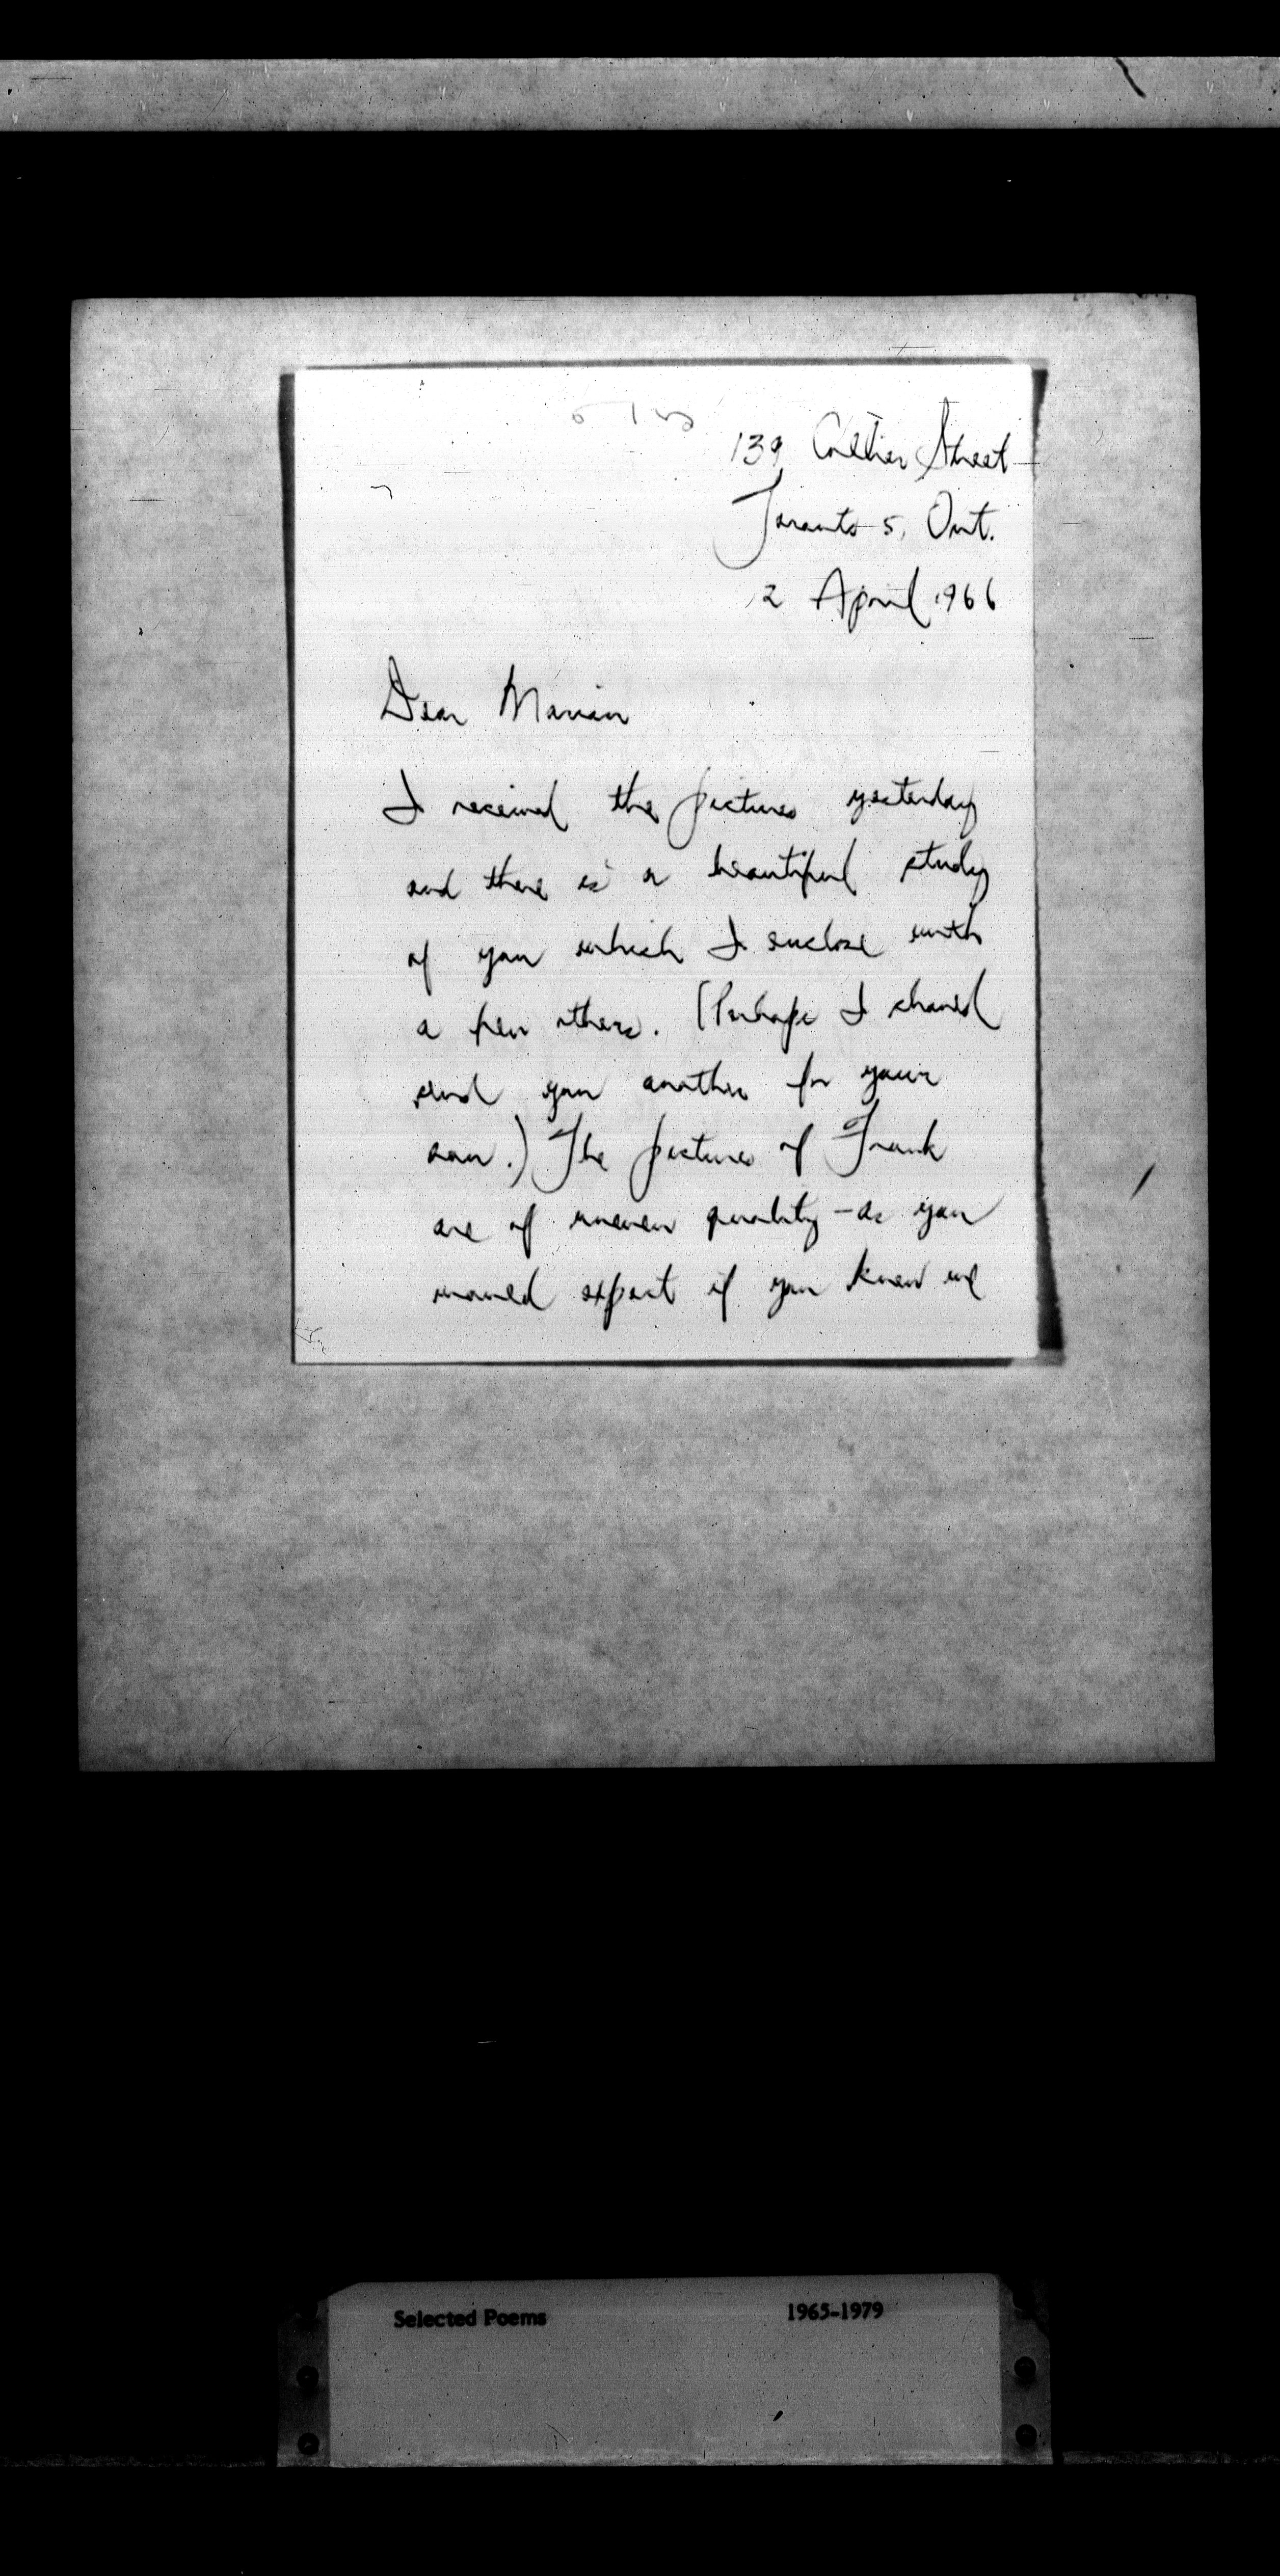 139 Collier Street
Toronto 5, Ont.
2 April 1966
Dear Marian
I received the pictures yesterday
and there is a beautiful study
of you which I enclose with
a few others. (Perhaps I should
send you another for your
son.) The pictures of Frank
are of uneven quality - as you
would expect if you knew me
Selected Poems 1965-1979